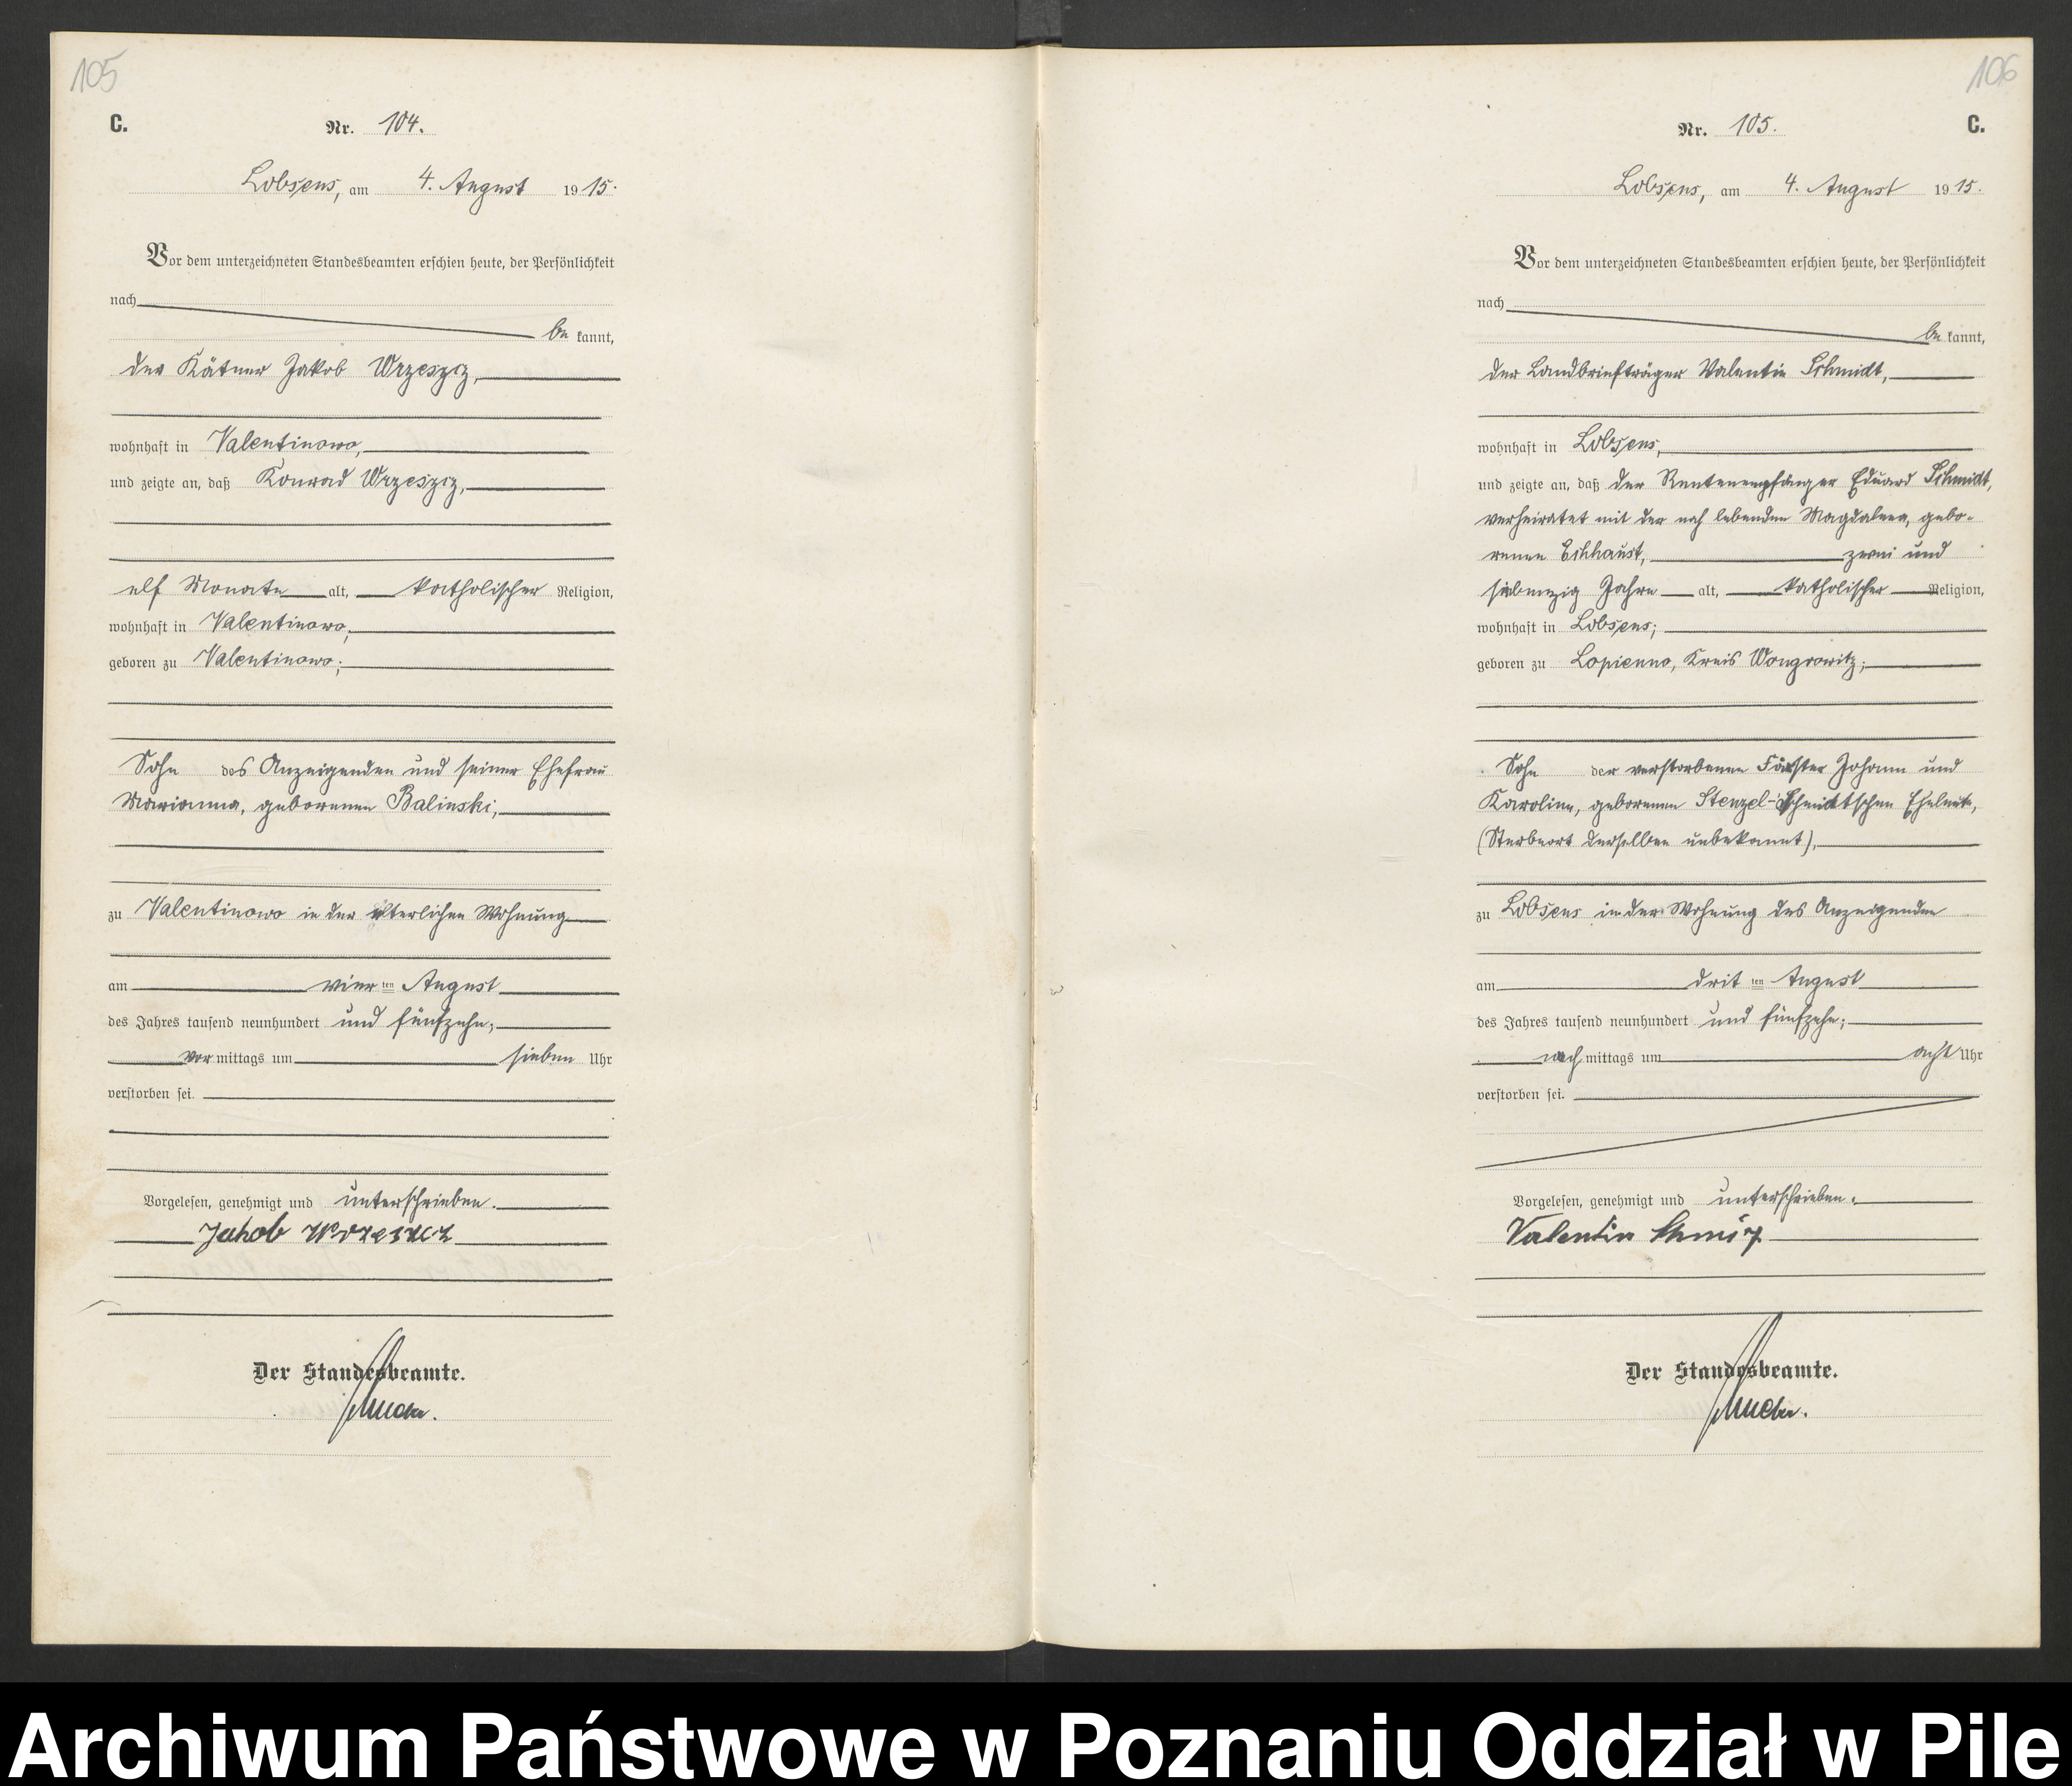 105
C.
Nr. 104.
Lobsens, am 4. August 1915.
Vor dem unterzeichneten Standesbeamten erschien heute, der Persönlichkeit
nach
be kannt,
der Kätner Jakob Wrzeszcz,
wohnhaft in Valentinowo,
und zeigte an, daß Konrad Wrzeszcz,
elf Monate alt, katholischer Religion,
wohnhaft in Valentinowo;
geboren zu Valentinowo;
Sohn des Anzeigenden und seiner Ehefrau
Marianna, geborenen Balinski,
zu Valentinowo in der elterlichen Wohnung
am vier ten August
des Jahres tausend neunhundert und fünfzehn,
vor mittags um sieben Uhr
verstorben sei.
Vorgelesen, genehmigt und unterschrieben.
Jakob Wrzeszcz
Der Standesbeamte.
106
Nr. 105. C.
Lobsens, am 4. August 1915.
Vor dem unterzeichneten Standesbeamten erschien heute, der Persönlichkeit
nach
be kannt,
der Landbriefträger Valentin Schmidt,
wohnhaft in Lobsens,
und zeigte an, daß der Rentenempfänger Eduard Schmidt,
verheiratet mit der noch lebenden Magdalena, gebo-
renen Eichhaust, zwei und
siebenzig Jahre alt, katholischer Religion,
wohnhaft in Lobsens;
geboren zu Lopienno, Kreis Wongrowitz;
Sohn der verstorbenen Förster Johann und
Karoline, geborenen Stenzel-Schmidtschen Eheleute,
(Sterbeort derselben unbekannt),
zu Lobsens in der Wohnung des Anzeigenden
am drit ten August
des Jahres tausend neunhundert und fünfzehn;
nach mittags um acht Uhr
verstorben sei.
Vorgelesen, genehmigt und unterschrieben.
Valentin Schmidt
Der Standesbeamte.
Archiwum Państwowe w Poznaniu Oddział w Pile